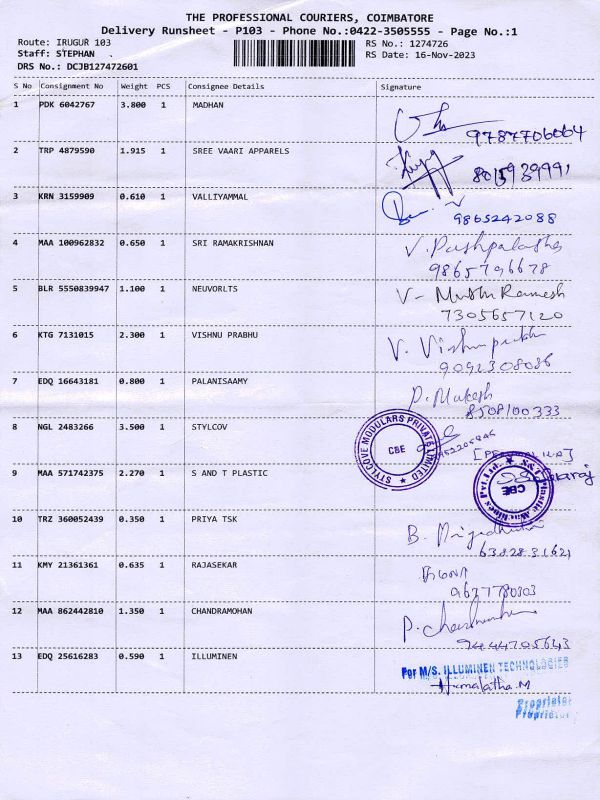 THE PROFESSIONAL COURIERS, COIMBATORE
Delivery Runsheet - P103 - Phone No.:0422-3505555 - Page No.:1
Route: IRUGUR 103
Staff: STEPHAN
DRS No.: DCJB127472601
RS No.: 1274726
RS Date: 16-Nov-2023
S No Consignment No Weight PCS Consignee Details Signature
1 PDK 6042767 3.800 1 MADHAN
9787706064
2 TRP 4879590 1.915 1 SREE VAARI APPARELS
8015939991
3 KRN 3159909 0.610 1 VALLIYAMMAL
9865242088
4 MAA 100962832 0.650 1 SRI RAMAKRISHNAN
V.
9865796678
5 BLR 5550839947 1.100 1 NEUVORLTS
V- Muthu Ramesh
7305657120
6 KTG 7131015 2.300 1 VISHNU PRABHU
V. Vishnuprabhu
9092308086
7 EDQ 16643181 0.800 1 PALANISAAMY
P. Mukesh
8508100333
8 NGL 2483266 3.500 1 STYLCOV
STYLCOVE MODULARS PRIVATE LIMITED
CBE
9 MAA 571742375 2.270 1 S AND T PLASTIC
S&T Plastic Machines Pvt. Ltd.
CBE
10 TRZ 360052439 0.350 1 PRIYA TSK
B.
11 KMY 21361361 0.635 1 RAJASEKAR
9677780303
12 MAA 862442810 1.350 1 CHANDRAMOHAN
P.
9444705643
13 EDQ 25616283 0.590 1 ILLUMINEN
For M/S. ILLUMINEN TECHNOLOGIES
Hemalatha.M
Proprietor
Proprietor